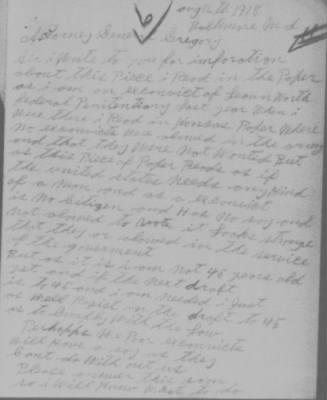 Aug 12th 1918
Baltimore Md
Attorney General Gregory
Sir i Write to you for imforation
about this Piece i Read in the Paper
as i am an exconvict of Leavn Worth
Federal Penitentiary Last year When i
Were there i Read in Kansas Paper Where
No exconvicts Were alowed in the army
and that they Were Not Wanted But
as this Piece of Paper Reads as if
the united states Needs any Kind
of a man and as a exconvict
is No Citizen and Has No say and
Not alowed to vote it Looks strange
that they or alowed in the service
of the goverment
But as it is i am not 45 years old
yet and if the Next draft
is to 45 and i am Needed i Just
as Well Regist in the draft to 45
as to Comply With the Law
Perhapps We Poor exconvicts
Will Have a say as they
Cant do With out us
Please answer this soon
so i Will Know What to do